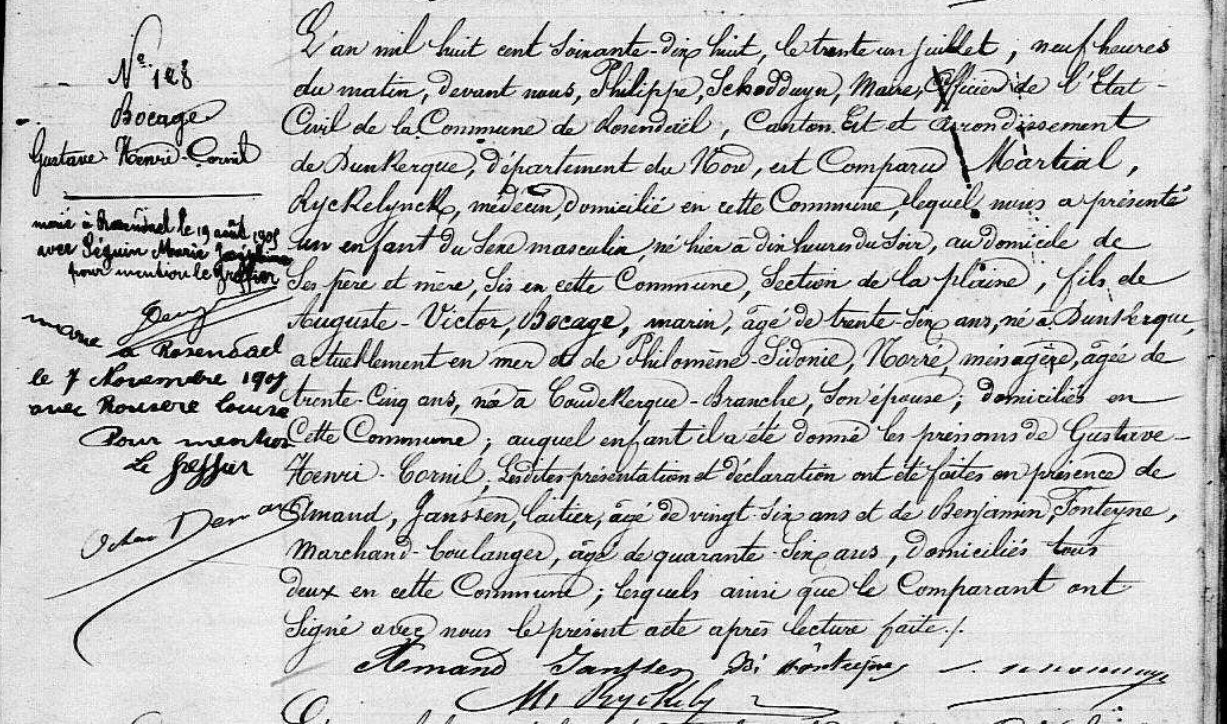 N° 128
Bocage
Gustave-Henri-Cornil
marié à Rosendael le 19 août 1905
avec Séguin Marie Joséphine
pour mention le Greffier
marié
à Rosendael
le 7 Novembre 190
avec Rousere Louise
Pour mention
Le Greffier
L'an mil huit cent soixante-dix huit, le trente un juillet, neuf heures
du matin, devant nous, Philippe, Schodduyn, Maire, Officier de l'Etat-
Civil de la Commune de Rosendaël, Canton Est et arrondissement
de Dunkerque, département du Nord, est Comparu Martial,
Ryckelynck, médecin, domicilié en cette Commune, lequel nous a présenté
un enfant du Sexe masculin, né hier à dix heures du Soir, au domicile de
Ses père et mère, Sis en cette Commune, Section de la plaine, fils de
Auguste-Victor, Bocage, marin, âgé de trente-Six ans, né à Dunkerque,
actuellement en mer et de Philomène-Sidonie, Norré, ménagère, âgée de
trente-Cinq ans, née à Coudekerque-Branche, Son épouse; domiciliés en
Cette Commune; auquel enfant il a été donné les prénoms de Gustave-
Henri-Cornil. Lesdites présentation et déclaration ont été faites en présence de
Amand, Janssen, laitier, âgé de vingt-Six ans et de Benjamin, Fonteyne,
Marchand-boulanger, âgé de quarante-Six ans, domiciliés tous
deux en cette Commune; lesquels ainsi que le Comparant ont
Signé avec nous le présent acte après lecture faite./.
Amand Janssen B. Fonteyne
M. Ryckely